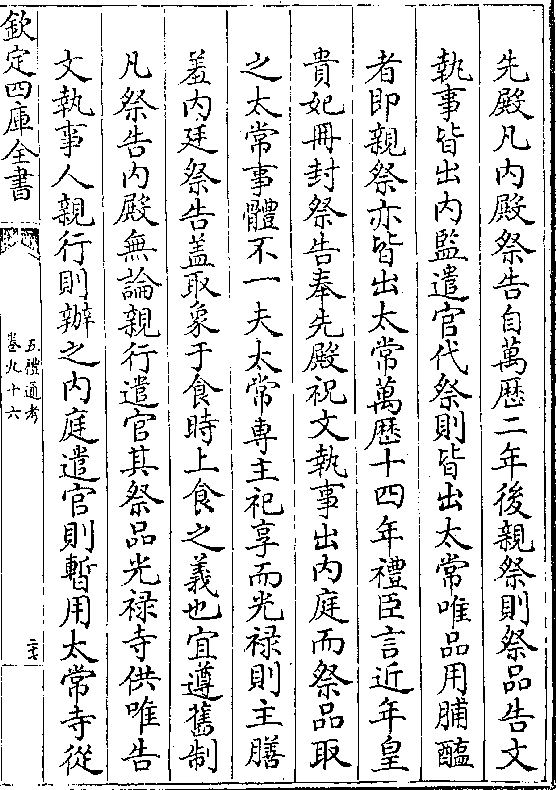 先殿凡内殿祭告自萬歴二年後親祭則祭品告文
執事皆出内監遣官代祭則皆出太常唯品用脯醢
者即親祭亦皆出太常萬歴十四年禮臣言近年皇
貴妃冊封祭告奉先殿祝文執事出内庭而祭品取
之太常事體不一夫太常專主祀享而光禄則主膳
羞内廷祭告盖取象于食時上食之義也宜遵舊制
凡祭告内殿無論親行遣官其祭品光禄寺供唯告
文執事人親行則辦之内庭遣官則暫用太常寺從
欽定四庫全書
五禮通考
卷九十六